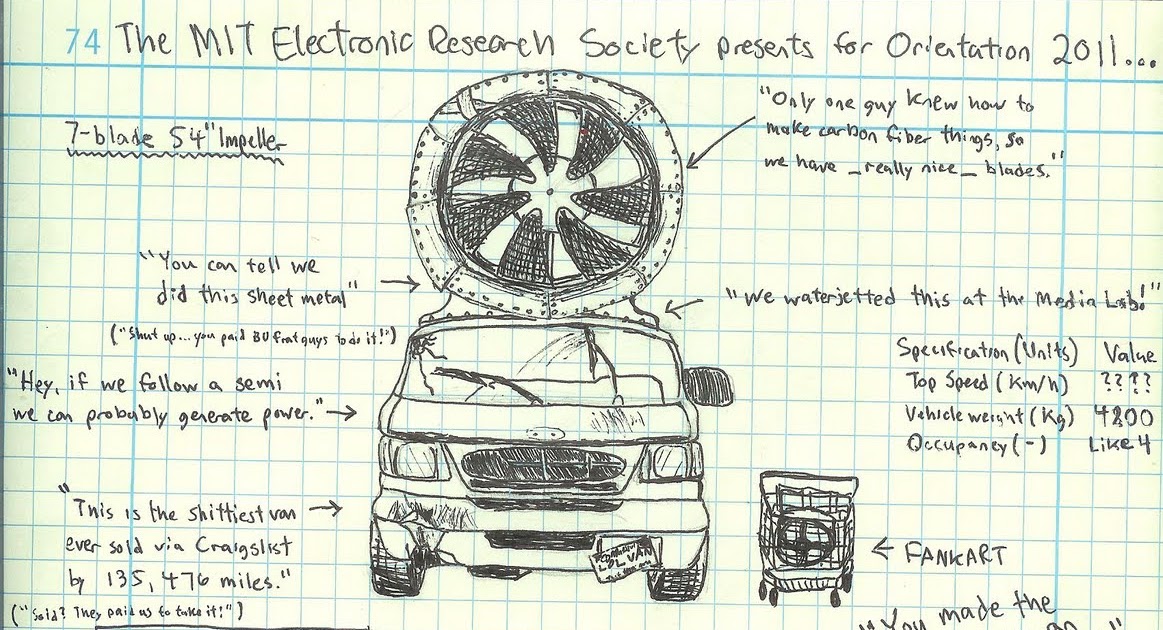 74 The MIT Electronic Research Society presents for Orientation 2011...
7-blade 54" Impeller
"Only one guy knew how to
make carbon fiber things, so
we have _really nice_ blades."
"You can tell we
did this sheet metal"
("Shut up... you paid BU frat guys to do it!")
"We waterjetted this at the Media Lab!"
Specification (Units) Value
Top Speed (Km/h) ????
Vehicle weight (Kg) 4200
Occupancy (-) Like 4
"Hey, if we follow a semi
we can probably generate power."
"This is the shittiest van
ever sold via Craigslist
by 135,476 miles."
("Sold? They paid us to take it!")
LOLVAN
FANKART
"You made the